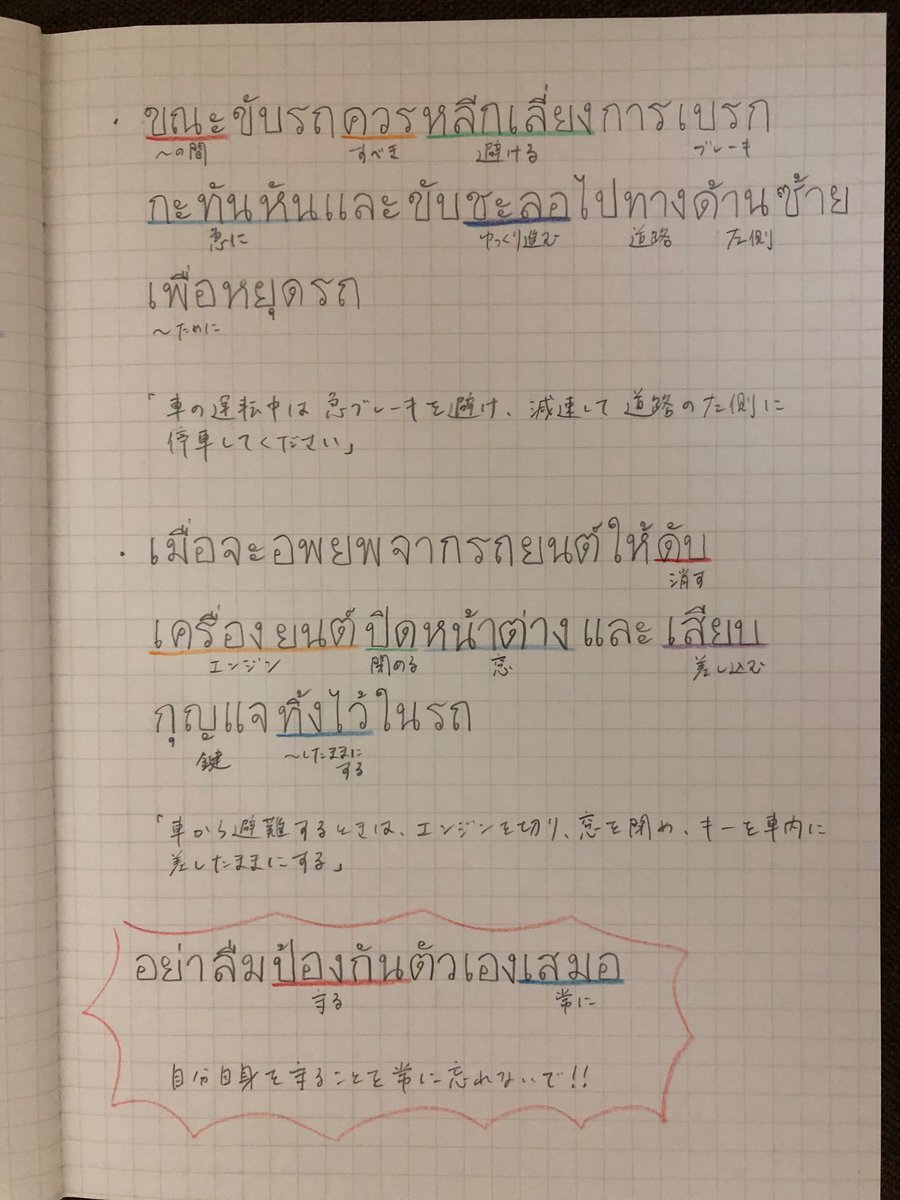 ・ขณะขับรถควรหลีกเลี่ยงการเบรก
～の間 すべき 避ける ブレーキ
กะทันหันและขับชะลอไปทางด้านซ้าย
急に ゆっくり進む 道路 左側
เพื่อหยุดรถ
～ために
「車の運転中は急ブレーキを避け、減速して道路の左側に
停車してください」
・เมื่อจะอพยพจากรถยนต์ให้ดับ
消す
เครื่องยนต์ปิดหน้าต่างและเสียบ
エンジン 閉める 窓 差し込む
กุญแจทิ้งไว้ในรถ
鍵 ～したままに
する
「車から避難するときは、エンジンを切り、窓を閉め、キーを車内に
差したままにする」
อย่าลืมป้องกันตัวเองเสมอ
守る 常に
自分自身を守ることを常に忘れないで!!